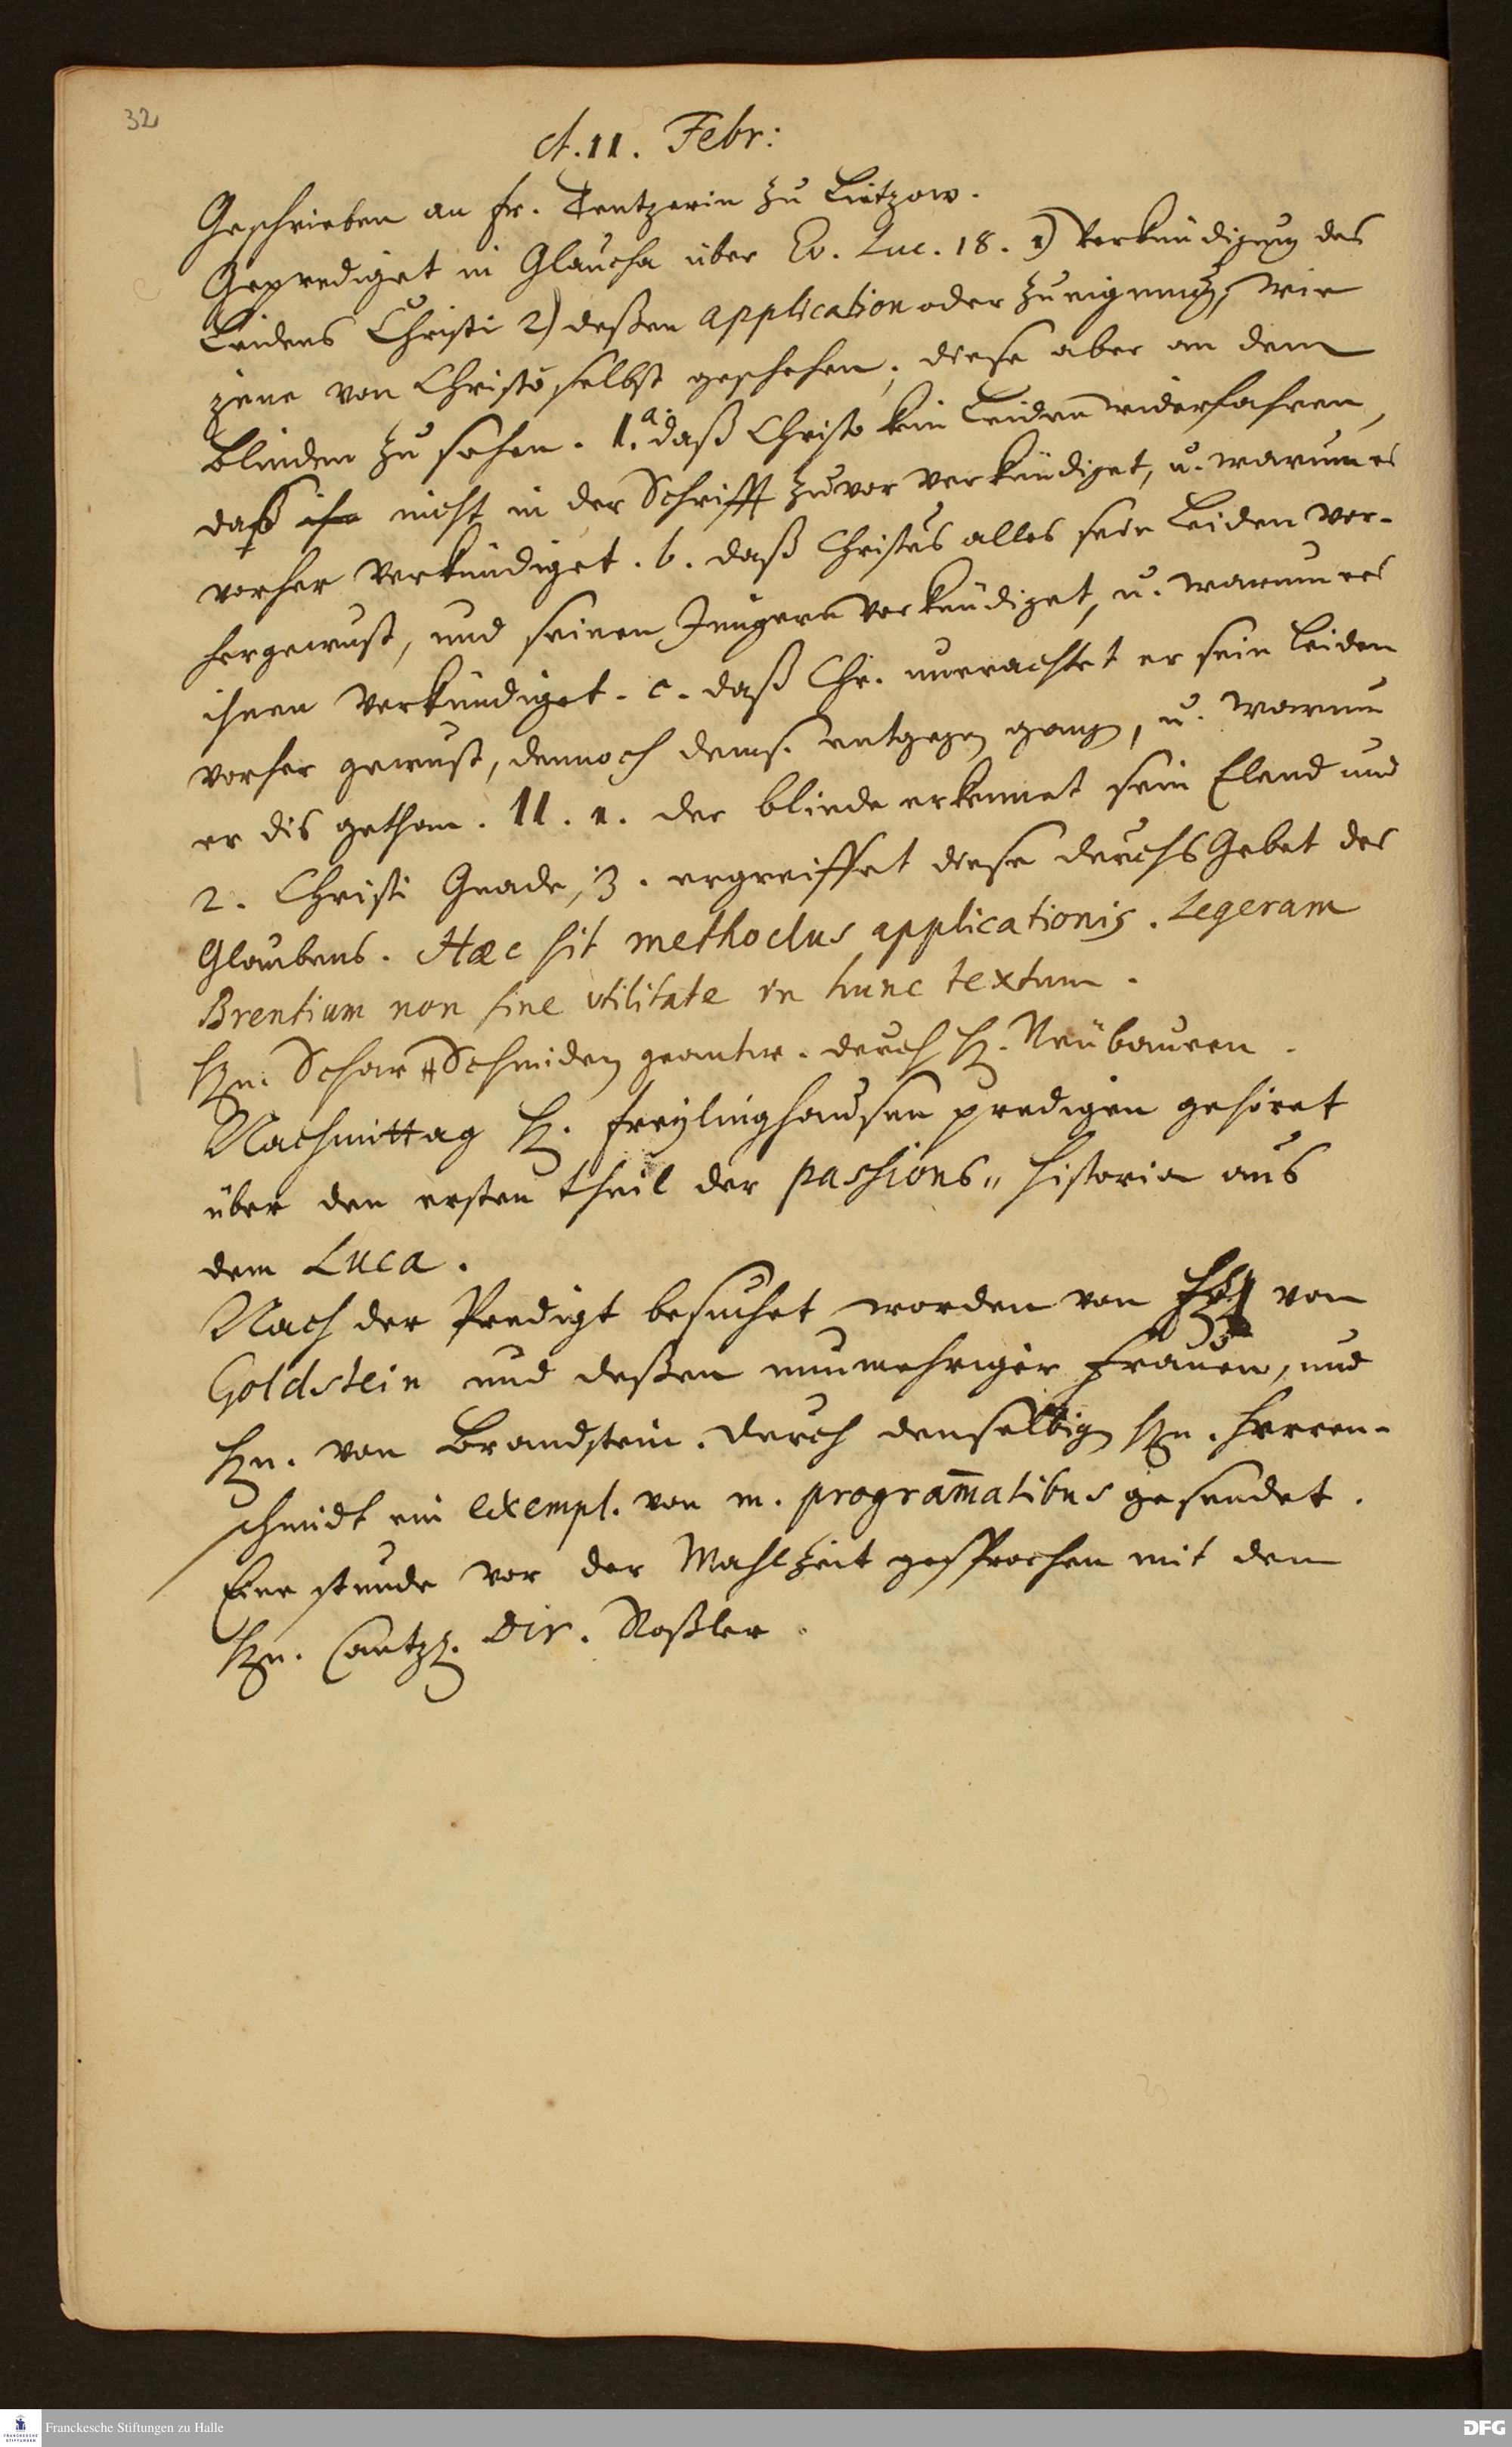 32
d. 11. Febr:
Geschrieben an Fr. Tentzerin zu Lietzow.
Geprediget in Glaucha über Ev. Luc. 18. 1) Verkündigung des
Leidens Christi 2) deßen application oder zueignung, wie
jene von Christo selbst geschehen, diese aber an dem
blinden zu sehen. I. a. daß Christo kein Leiden widerfahren,
daß ihm nicht in der Schrifft zuvor verkündiget, u. warum es
vorher verkündiget. b. daß Christus alles sein Leiden vor-
hergewust, und seinen Jüngern verkündiget, u. warum ers
ihnen verkündiget. c. daß Chr. unerachtet er sein Leiden
vorher gewust, dennoch dems. entgegen gangen, u. warum
er dis gethan. II. 1. der blinde erkennet sein Elend und
2. Christi Gnade, 3. ergreiffet diese durchs Gebet des
Glaubens. Hæc sit methodus applicationis. Legeram
Brentium non sine utilitate in hunc textum.
Hn. Schar Schmiden geantw. durch H. Neübauren.
Nachmittag H. Freylinghausen predigen gehöret
über den ersten theil der passions-Historia aus
dem Luca.
Nach der Predigt besuchet worden von von
Goldstein und deßen nunmehriger Frauen, und
Hn. von Brandstein. durch denselbigen Hn. Herren-
schmidt ein exempl. von m. programmatibus gesendet.
Eine stunde vor der Mahlzeit gesprochen mit dem
Hn. Cantzl. Dir. Roßler.
Franckesche Stiftungen zu Halle
FRANCKESCHE STIFTUNGEN
DFG